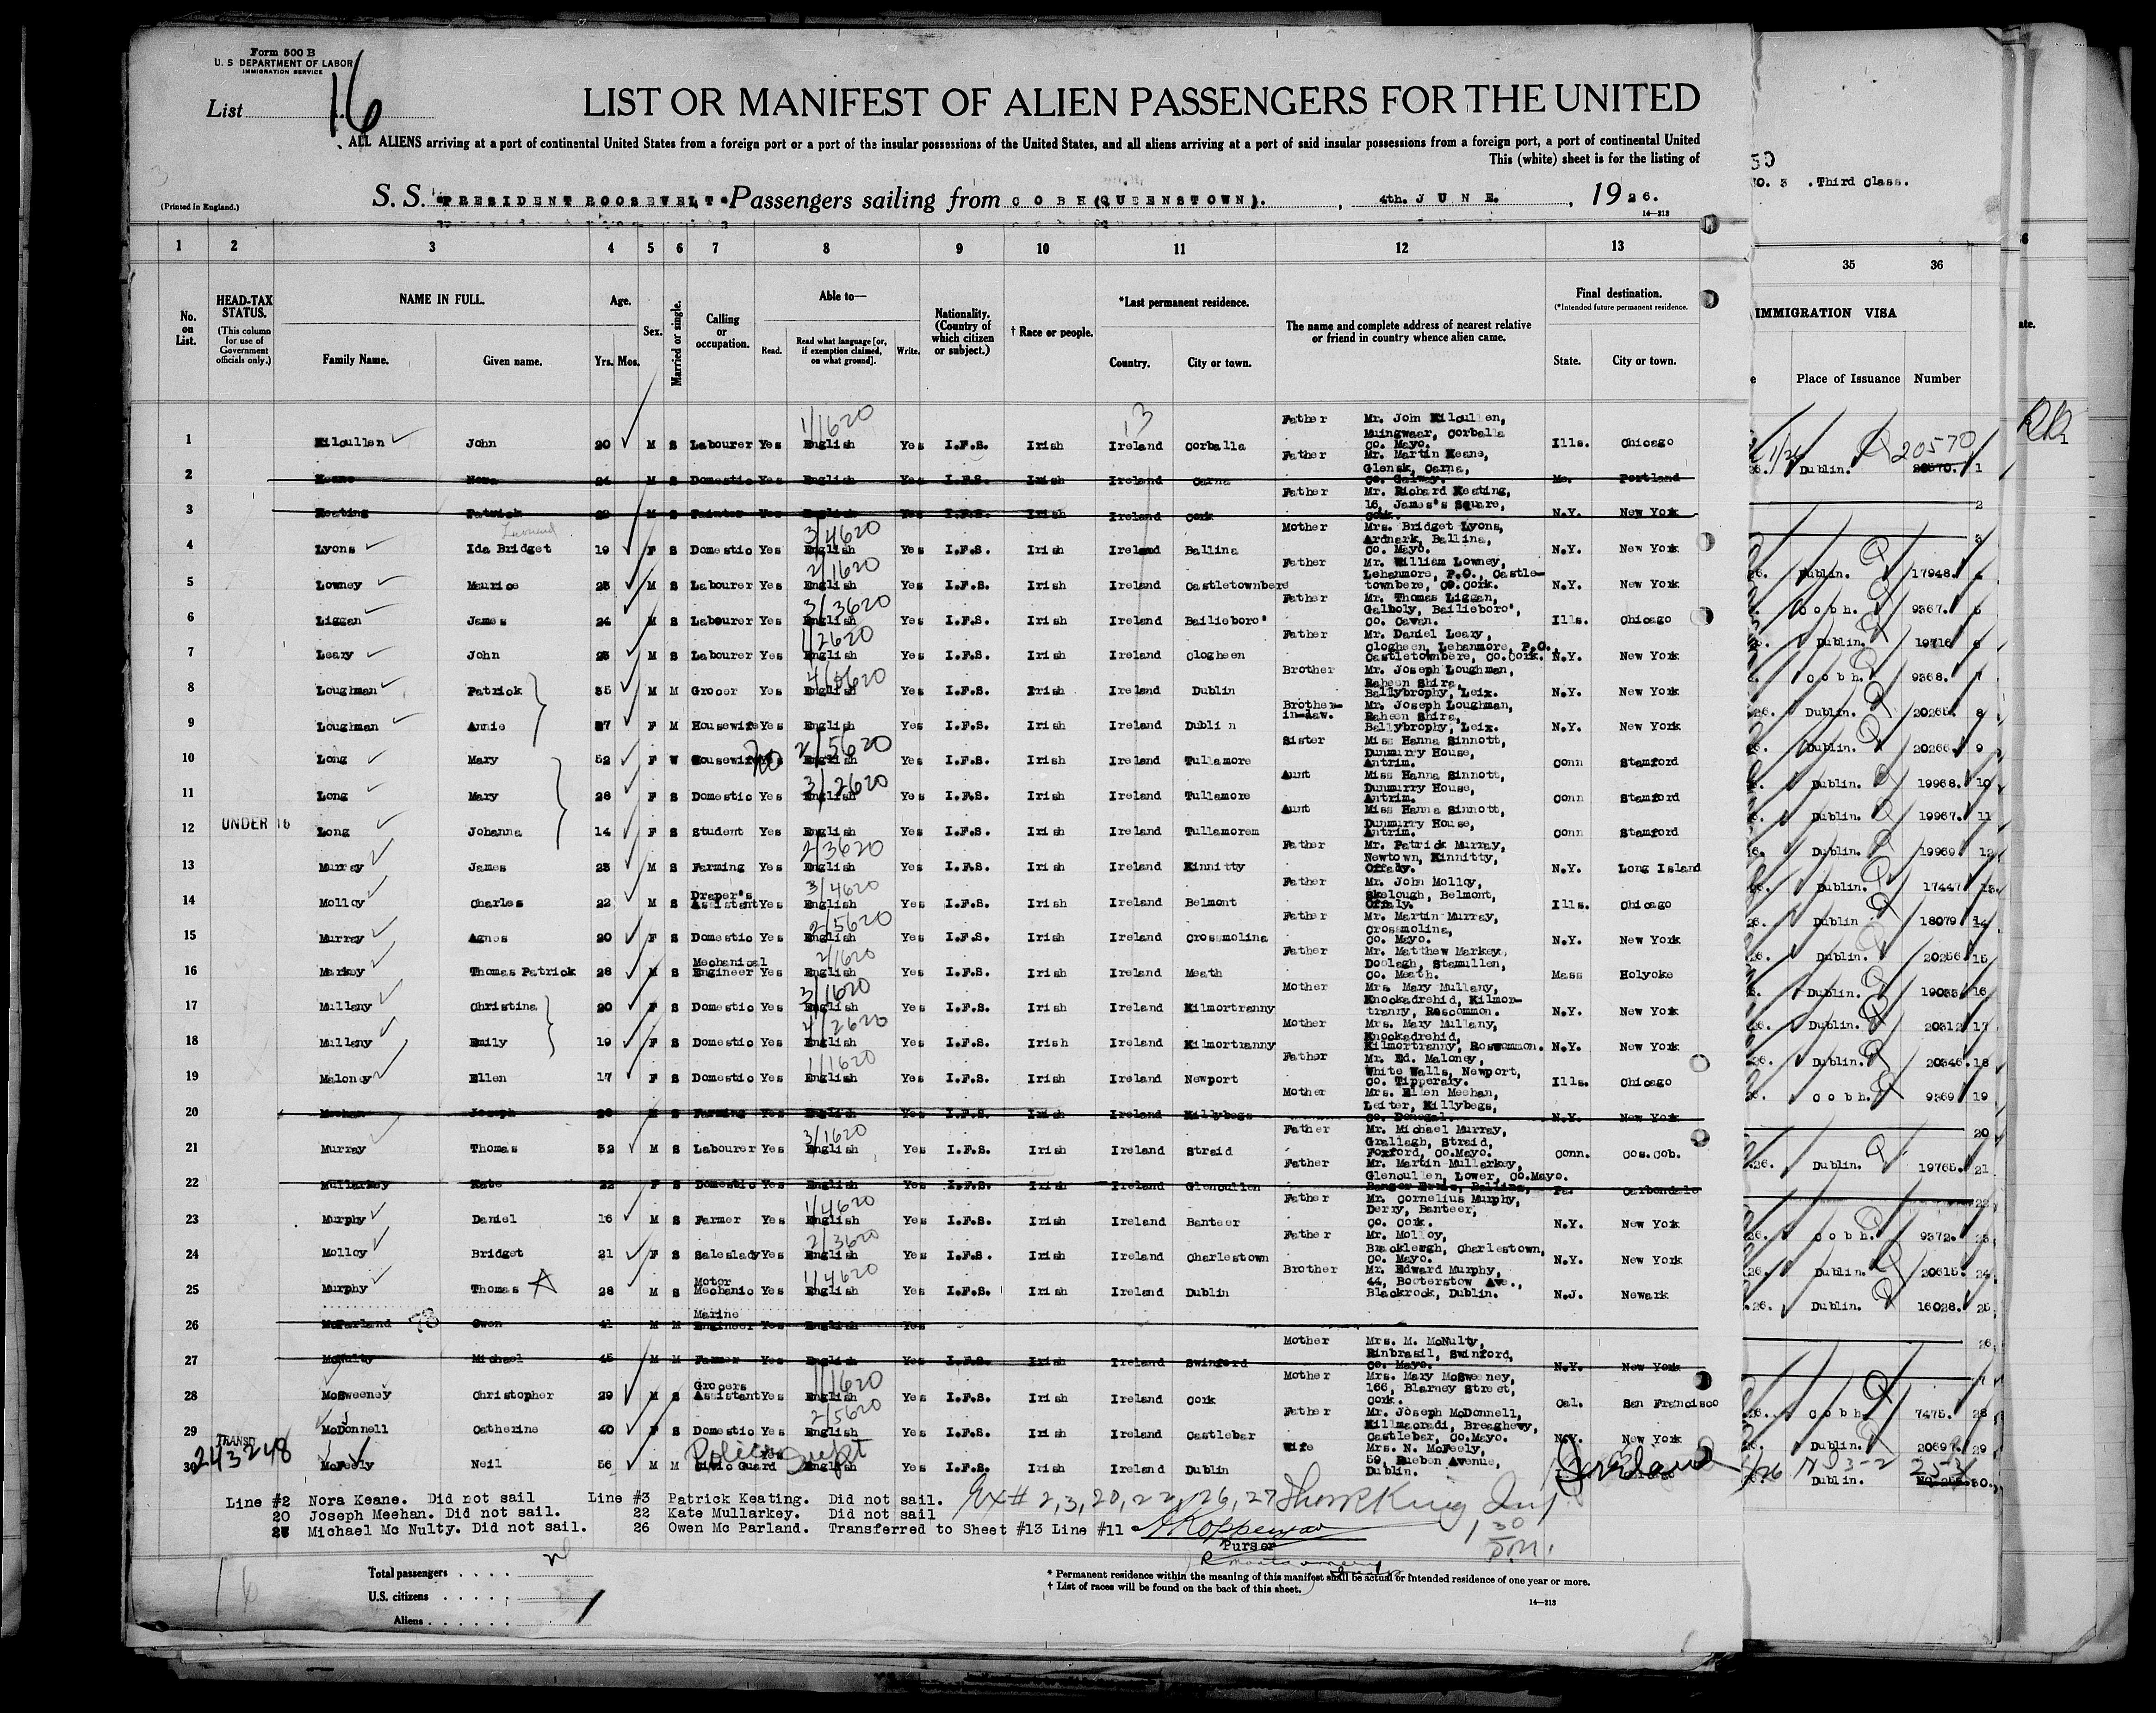 Form 500 B
U. S DEPARTMENT OF LABOR
IMMIGRATION SERVICE
List 16
LIST OR MANIFEST OF ALIEN PASSENGERS FOR THE UNITED
ALL ALIENS arriving at a port of continental United States from a foreign port or a port of the insular possessions of the United States, and all aliens arriving at a port of said insular possessions from a foreign port, a port of continental United
This (white) sheet is for the listing of
(Printed in England.)
S. S. "PRESIDENT ROOSEVELT" Passengers sailing from COBH (QUEENSTOWN). , 4th. JUNE. , 1926.
14—213
NO. 3 . Third Class.
1 2 3 4 5 6 7 8 9 10 11 12 13 35 36
No. on List.
HEAD-TAX STATUS.
(This column for use of Government officials only.)
NAME IN FULL.
Family Name. Given name.
Age.
Yrs. Mos.
Sex.
Married or single.
Calling or occupation.
Able to—
Read. Read what language [or, if exemption claimed, on what ground]. Write.
Nationality. (Country of which citizen or subject.)
† Race or people.
*Last permanent residence.
Country. City or town.
The name and complete address of nearest relative or friend in country whence alien came.
Final destination.
(*Intended future permanent residence.
State. City or town.
IMMIGRATION VISA
Place of Issuance Number
1 Kilcullen John 20 M S Labourer Yes English 1/1620 Yes I.F.S. Irish Ireland Corballa Father Mr. John Kilcullen, Muingwaar, Corballa Co. Mayo. Ills. Chicago Dublin. 20570 1
2 Keane Nora 24 M S Domestic Yes English Yes I.F.S. Irish Ireland Carna Father Mr. Martin Keane, Glensk, Carna, Co. Galway. Me. Portland 2
3 Keating Patrick M S Painter Yes English Yes I.F.S. Irish Ireland Cork Father Mr. Richard Keating, 16, James's Square, Cork. N.Y. New York 3
4 Lyons Ida Bridget 19 F S Domestic Yes English 3/4620 Yes I.F.S. Irish Ireland Ballina Mother Mrs. Bridget Lyons, Ardnark, Ballina, Co. Mayo. N.Y. New York Dublin. 17948. 4
5 Lowney Maurice 25 M S Labourer Yes English 2/1620 Yes I.F.S. Irish Ireland Castletownbere Father Mr. William Lowney, Lehanmore, P.O., Castle-townbere, Co. Cork. N.Y. New York Cobh. 9367. 5
6 Liggan James 24 M S Labourer Yes English 3/3620 Yes I.F.S. Irish Ireland Bailieboro' Father Mr. Thomas Liggan, Galboly, Bailieboro', Co. Cavan. Ills. Chicago Dublin. 19716 6
7 Leary John 25 M S Labourer Yes English 1/2620 Yes I.F.S. Irish Ireland Clogheen Father Mr. Daniel Leary, Clogheen, Lehanmore, P.O., Castletownbere, Co. Cork. N.Y. New York Cobh. 9368. 7
8 Loughman Patrick 35 M M Grocer Yes English Yes I.F.S. Irish Ireland Dublin Brother Mr. Joseph Loughman, Raheen Shira, Ballybrophy, Leix. N.Y. New York Dublin. 20265. 8
9 Loughman Annie 37 F M Housewife Yes English Yes I.F.S. Irish Ireland Dublin Brother-in-law. Mr. Joseph Loughman, Raheen Shira, Ballybrophy, Leix. N.Y. New York Dublin. 20266. 9
10 Long Mary 52 F W Housewife No English 2/5620 Yes I.F.S. Irish Ireland Tullamore Sister Miss Hanna Sinnott, Dunmurry House, Antrim. Conn Stamford Dublin. 19968. 10
11 Long Mary 26 F S Domestic Yes English 3/2620 Yes I.F.S. Irish Ireland Tullamore Aunt Miss Hanna Sinnott, Dunmurry House, Antrim. Conn Stamford Dublin. 19967. 11
12 UNDER 16 Long Johanna 14 F S Student Yes English Yes I.F.S. Irish Ireland Tullamorem Aunt Miss Hanna Sinnott, Dunmurry House, Antrim. Conn Stamford Dublin. 19969 12
13 Murray James 25 M S Farming Yes English 2/3620 Yes I.F.S. Irish Ireland Kinnitty Father Mr. Patrick Murray, Newtown, Kinnitty, Offaly. N.Y. Long Island Dublin. 17447 13.
14 Molloy Charles 22 M S Draper's Assistant Yes English 3/4620 Yes I.F.S. Irish Ireland Belmont Father Mr. John Molloy, Skelough, Belmont, Offaly. Ills. Chicago Dublin 18079 14
15 Murray Agnes 20 F S Domestic Yes English 2/5620 Yes I.F.S. Irish Ireland Crossmolina Father Mr. Martin Murray, Crossmolina, Co. Mayo. N.Y. New York Dublin. 20256 15
16 Markey Thomas Patrick 28 M S Mechanical Engineer Yes English 2/1620 Yes I.F.S. Irish Ireland Meath Father Mr. Matthew Markey, Doolagh, Stamullen, Co. Meath. Mass Holyoke Dublin. 16
17 Mullany Christina 20 F S Domestic Yes English 3/1620 Yes I.F.S. Irish Ireland Kilmortranny Mother Mrs. Mary Mullany, Knockadrehid, Kilmor-tranny, Roscommon. N.Y. New York Dublin. 20312 17
18 Mullany Emily 19 F S Domestic Yes English 4/2620 Yes I.F.S. Irish Ireland Kilmortranny Mother Mrs. Mary Mullany, Knockadrehid, Kilmortranny, Roscommon. N.Y. New York Dublin. 20346. 18
19 Maloney Ellen 17 F S Domestic Yes English 1/1620 Yes I.F.S. Irish Ireland Newport Father Mr. Ed. Maloney, White Walls, Newport, Co. Tipperary. Ills. Chicago Cobh. 9369 19
20 Meehan Joseph M S Farming Yes English Yes I.F.S. Irish Ireland Killybegs Mother Mrs. Ellen Meehan, Leiter, Killybegs, Co. Donegal N.Y. New York 20
21 Murray Thomas 32 M S Labourer Yes English 3/1620 Yes I.F.S. Irish Ireland Straid Father Mr. Michael Murray, Grallagh, Straid, Foxford, Co.Mayo. Conn. Cos.Cob. Dublin. 19765. 21
22 Mullarkey Kate 22 F S Domestic Yes English Yes I.F.S. Irish Ireland Glencullen Father Mr. Martin Mullarkey, Glencullen, Lower, Co.Mayo. Bangor Erris, Ballina, Pa. Carbondale 22
23 Murphy Daniel 16 M S Farmer Yes English 1/4620 Yes I.F.S. Irish Ireland Banteer Father Mr. Cornelius Murphy, Derry, Banteer, Co. Cork. N.Y. New York Cobh. 9372. 23
24 Molloy Bridget 21 F S Saleslady Yes English 2/3620 Yes I.F.S. Irish Ireland Charlestown Father Mr. Molloy, Bracklergh, Charlestown, Co. Mayo. N.Y. New York Dublin. 20615. 24
25 Murphy Thomas 28 M S Motor Mechanic Yes English 1/4620 Yes I.F.S. Irish Ireland Dublin Brother Mr. Edward Murphy, 44, Booterstow Ave., Blackrock, Dublin. N.J. Newark Dublin. 16028. 25
26 McParland Owen 41 M M Marine Engineer Yes English Yes 26
27 McNulty Michael 45 M M Farmer Yes English Yes I.F.S. Irish Ireland Swinford Mother Mrs. M. McNulty, Rinbrasil, Swinford, Co. Mayo. N.Y. New York
28 McSweeney Christopher 29 M S Grocers Assistant Yes English 1/1620 Yes I.F.S. Irish Ireland Cork Mother Mrs. Mary McSweeney, 166, Blarney Street, Cork. Cal. San Francisco Cobh 7475. 28
29 McDonnell Catherine 40 F S Domestic Yes English 2/5620 Yes I.F.S. Irish Ireland Castlebar Father Mr. Joseph McDonnell, Killmacradi, Breaghewy, Castlebar, Co.Mayo. N.Y. New York Dublin. 20697. 29
30 TRANSIT 243248 McFeely Neil 56 M M Civic Guard Police Supt Yes English Yes I.F.S. Irish Ireland Dublin Wife Mrs. N. McFeely, 59, Rueben Avenue, Dublin. Ireland Dublin. 30.
Line #2 Nora Keane. Did not sail Line #3 Patrick Keating. Did not sail. Ex# 2,3,20,22,26,27
20 Joseph Meehan. Did not sail. 22 Kate Mullarkey. Did not sail
27 Michael Mc Nulty. Did not sail. 26 Owen Mc Parland. Transferred to Sheet #13 Line #11
Purser
Total passengers
U.S. citizens
Aliens
* Permanent residence within the meaning of this manifest shall be actual or intended residence of one year or more.
† List of races will be found on the back of this sheet.
14—213